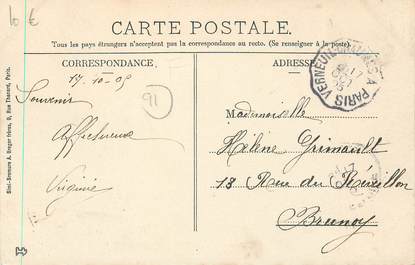 10 €
CARTE POSTALE
Tous les pays étrangers n'acceptent pas la correspondance au recto. (Se renseigner à la poste).
CORRESPONDANCE
ADRESSE
17-10-05
Souvenir
Affectueux
Virginie
91
VERNEUIL-CHAUMES A PARIS
17
OCT
05
Mademoiselle
Hélène Grimault
13 Rue du Réveillon
Brunoy
Simi-Bromure A. Breger frères, 9, Rue Thénard, Paris.